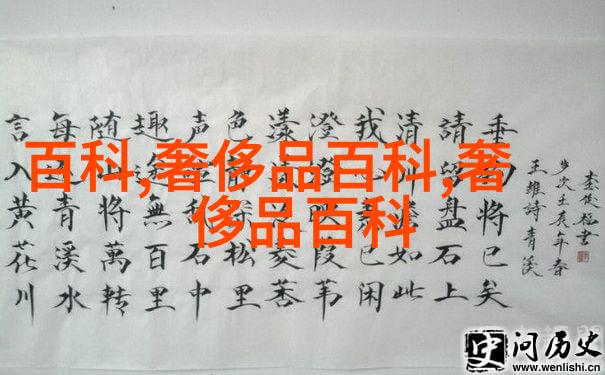 百科,奢侈品百科,奢
侈品百科
言入黄花川
每逐青溪水
随山將萬转
趣途無百里
声喧乱石中
色静深松里
漾漾泛菱荇
澄澄映葭苇
我心素已闲
清川澹如此
請留盘石上
垂钓将已矣
王維詩青溪
岁次壬辰年春
书
问历史
www.wenlishi.cn